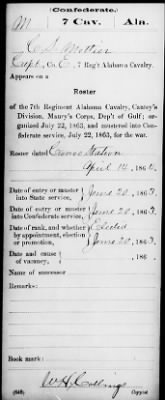 Confederate.
M | 7 Cav. | Ala.
C S
Capt, Co. E, 7 Reg't Alabama Cavalry.
Appears on a
Roster
of the 7th Regiment Alabama Cavalry, Cantey's
Division, Maury's Corps, Dep't of Gulf; or-
ganized July 22, 1863, and mustered into Con-
federate service, July 22, 1863, for the war.
Roster dated
Station
April 14, 186
Date of entry or muster
into State service,
June 20, 1863.
Date of entry or muster
into Confederate service,
June 20, 1863.
Date of rank, and whether
by appointment, election
or promotion,
Elected
June 20, 1863.
Date and cause
of vacancy,
, 186 .
Name of successor
Remarks:
Book mark:
W H
Copyist